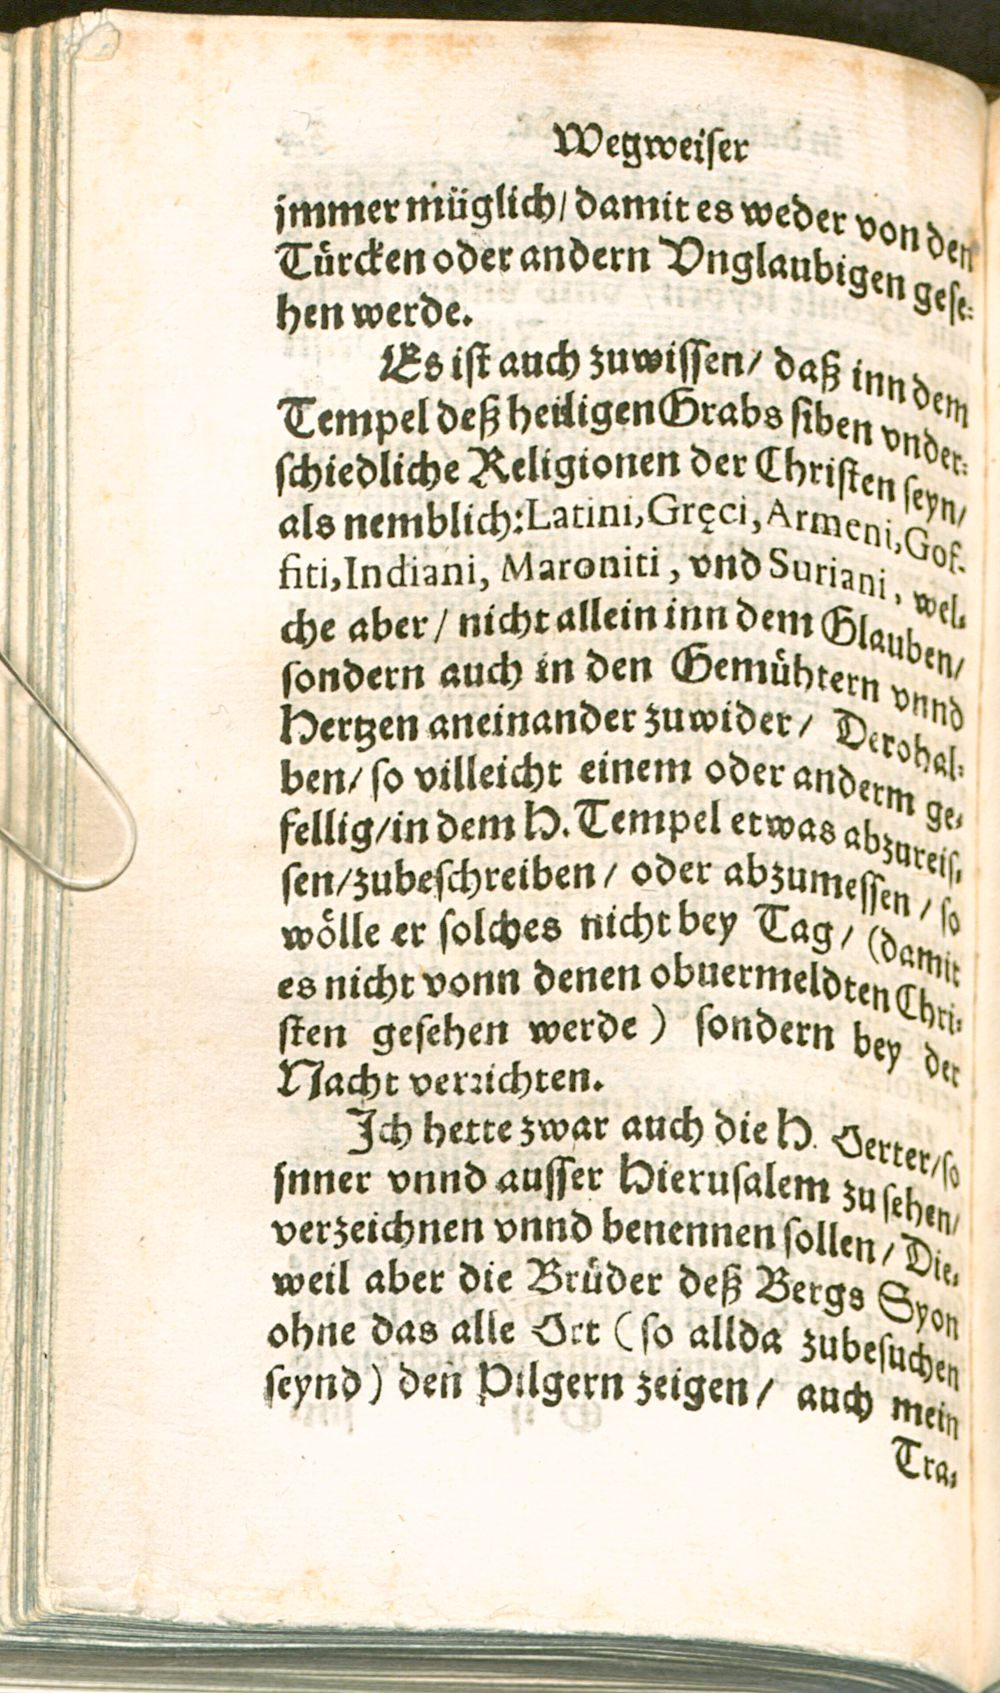 Wegweiser
jmmer müglich/ damit es weder von den
Türcken oder andern Vnglaubigen gese-
hen werde.
Es ist auch zuwissen/ daß inn dem
Tempel deß heiligen Grabs siben vnder-
schiedliche Religionen der Christen seyn/
als nemblich: Latini, Gręci, Armeni, Gof-
fiti, Indiani, Maroniti, vnd Suriani, wel-
che aber/ nicht allein inn dem Glauben/
sondern auch in den Gemühtern vnnd
Hertzen aneinander zuwider/ Derohal-
ben/ so villeicht einem oder anderm ge-
fellig/ in dem H. Tempel etwas abzureis-
sen/ zubeschreiben/ oder abzumessen/ so
wölle er solches nicht bey Tag/ (damit
es nicht vonn denen obuermeldten Chri-
sten gesehen werde) sondern bey der
Nacht verrichten.
Ich hette zwar auch die H. Oerter/ so
jnner vnnd ausser Hierusalem zu sehen/
verzeichnen vnnd benennen sollen/ Die-
weil aber die Brüder deß Bergs Syon
ohne das alle Ort (so allda zubesuchen
seynd) den Pilgern zeigen/ auch mein
Tra-